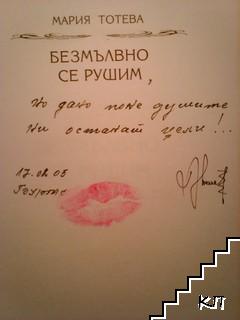 МАРИЯ ТОТЕВА
БЕЗМЪЛВНО
СЕ РУШИМ,
но дано поне душите
ни останат цели!!!
17.02.05